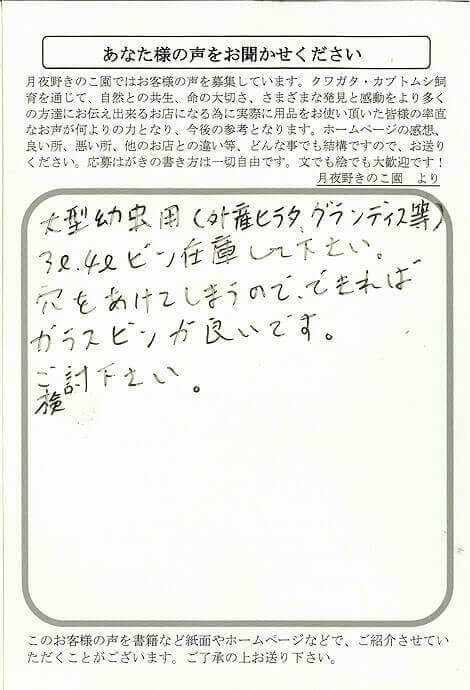 あなた様の声をお聞かせください
月夜野きのこ園ではお客様の声を募集しています。クワガタ・カブトムシ飼
育を通じて、自然との共生、命の大切さ、さまざまな発見と感動をより多く
の方達にお伝え出来るお店になる為に実際に用品をお使い頂いた皆様の率直
なお声が何よりの力となり、今後の参考となります。ホームページの感想、
良い所、悪い所、他のお店との違い等、どんな事でも結構ですので、お送り
ください。応募はがきの書き方は一切自由です。文でも絵でも大歓迎です！
月夜野きのこ園　より
大型幼虫用(外産ヒラタ、グランディス等)
3ℓ.4ℓビン在庫して下さい。
穴をあけてしまうので、できれば
ガラスビンが良いです。
ご検討下さい。
このお客様の声を書籍など紙面やホームページなどで、ご紹介させてい
ただくことがございます。ご了承の上お送り下さい。